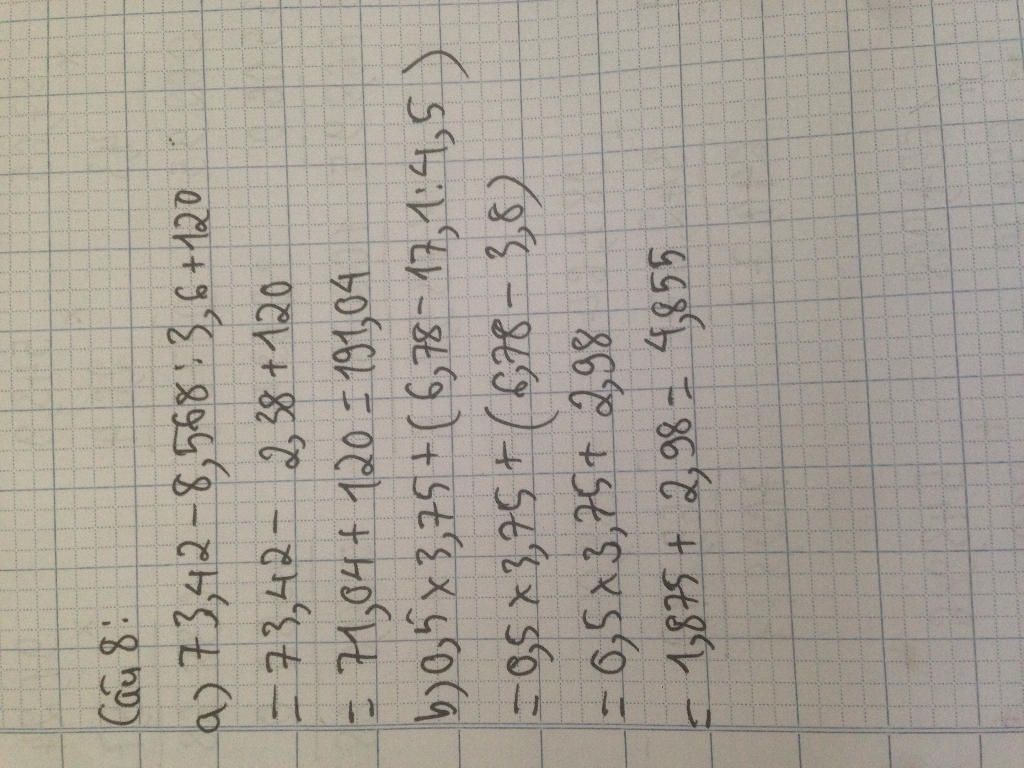 Câu 8:
a) 73,42 - 8,568 : 3,6 + 120
= 73,42 - 2,38 + 120
= 71,04 + 120 = 191,04
b) 0,5 x 3,75 + (6,78 - 17,1 : 4,5)
= 0,5 x 3,75 + (6,78 - 3,8)
= 0,5 x 3,75 + 2,98
= 1,875 + 2,98 = 4,855